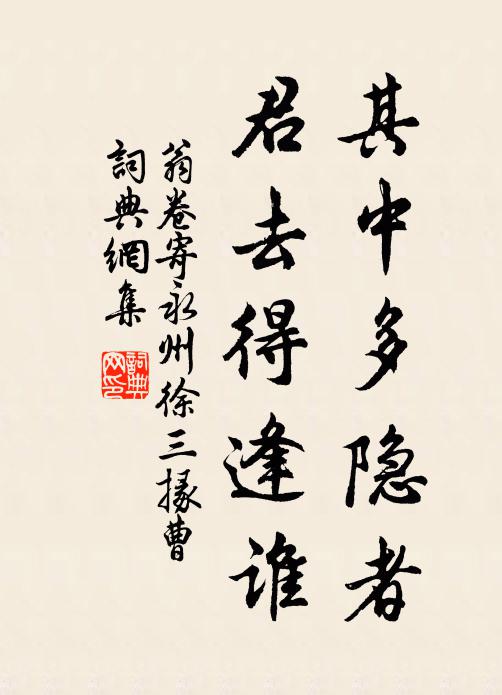 其中多隐者
君去得逢谁
翁卷寄永州徐三掾曹
詞典網集
詞典网印